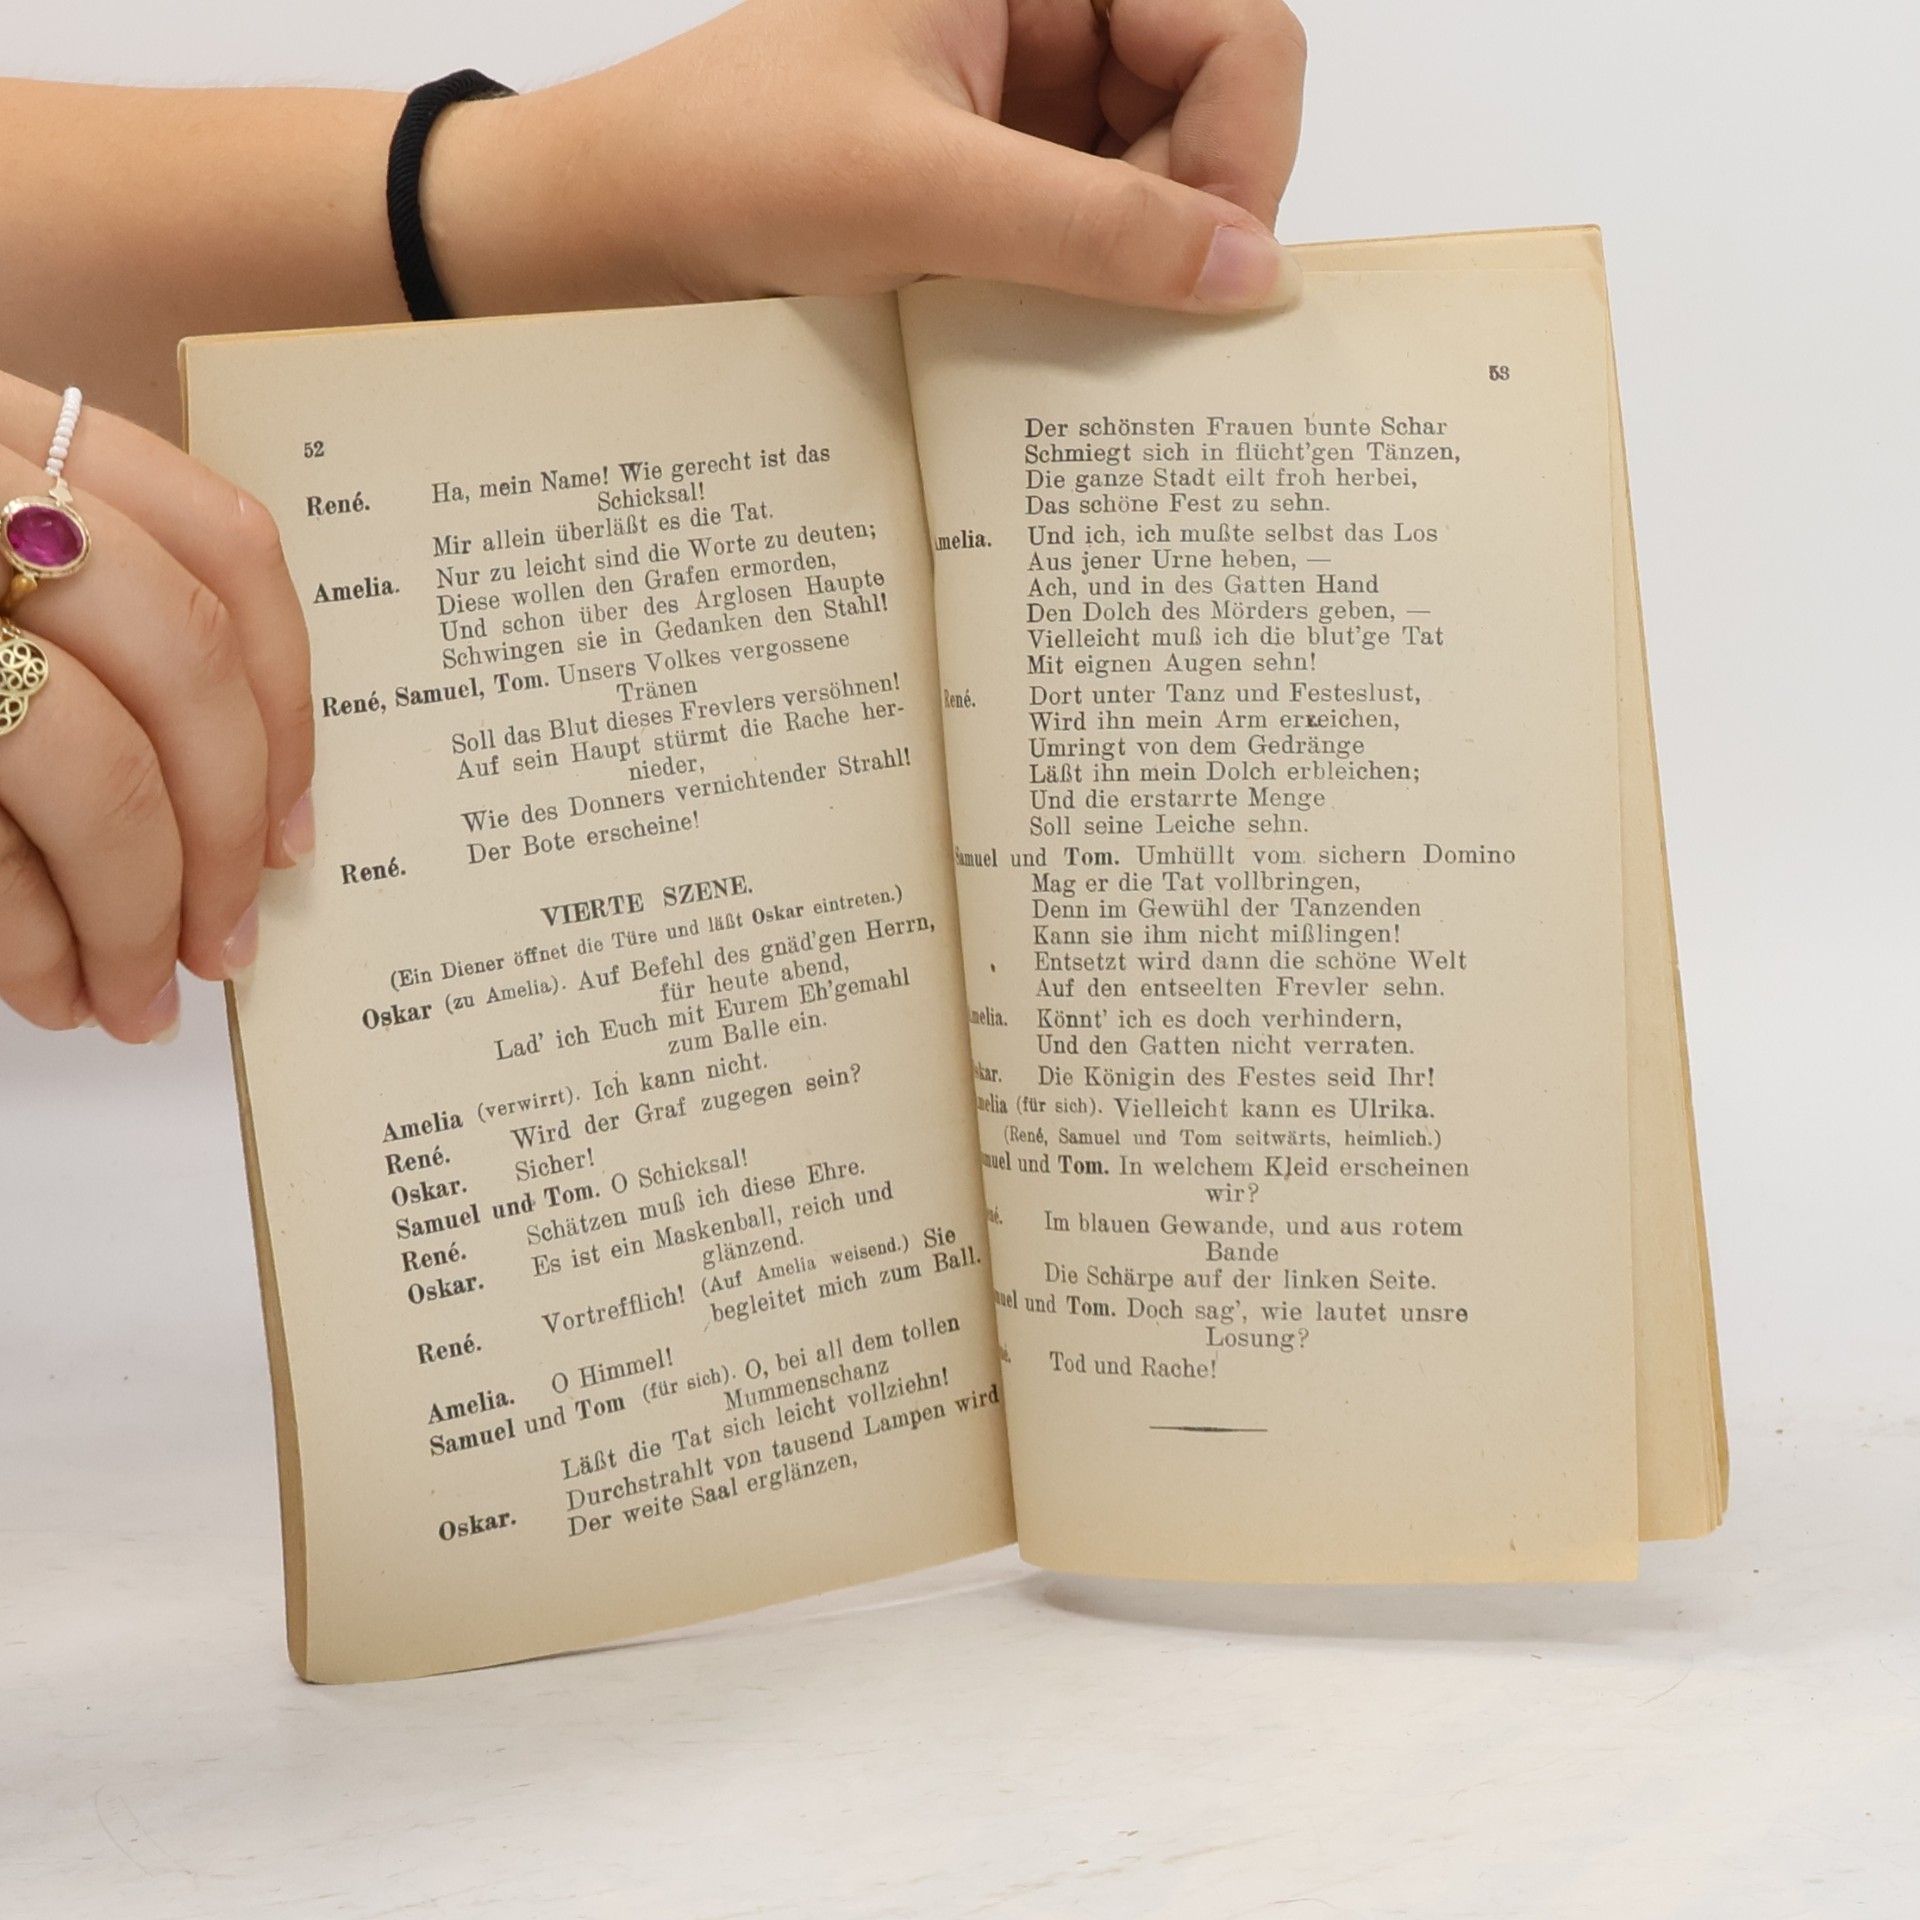 52
René. Ha, mein Name! Wie gerecht ist das
Schicksal!
Mir allein überläßt es die Tat.
Amelia. Nur zu leicht sind die Worte zu deuten;
Diese wollen den Grafen ermorden,
Und schon über des Arglosen Haupte
Schwingen sie in Gedanken den Stahl!
René, Samuel, Tom. Unsers Volkes vergossene
Tränen
Soll das Blut dieses Frevlers versöhnen!
Auf sein Haupt stürmt die Rache her-
nieder,
Wie des Donners vernichtender Strahl!
René. Der Bote erscheine!
VIERTE SZENE.
(Ein Diener öffnet die Türe und läßt Oskar eintreten.)
Oskar (zu Amelia). Auf Befehl des gnäd'gen Herrn,
für heute abend,
Lad' ich Euch mit Eurem Eh'gemahl
zum Balle ein.
Amelia (verwirrt). Ich kann nicht.
René. Wird der Graf zugegen sein?
Oskar. Sicher!
Samuel und Tom. O Schicksal!
René. Schätzen muß ich diese Ehre.
Oskar. Es ist ein Maskenball, reich und
glänzend.
René. Vortrefflich! (Auf Amelia weisend.) Sie
begleitet mich zum Ball.
Amelia. O Himmel!
Samuel und Tom (für sich). O, bei all dem tollen
Mummenschanz
Läßt die Tat sich leicht vollziehn!
Oskar. Durchstrahlt von tausend Lampen wird
Der weite Saal erglänzen,
53
Der schönsten Frauen bunte Schar
Schmiegt sich in flücht'gen Tänzen,
Die ganze Stadt eilt froh herbei,
Das schöne Fest zu sehn.
Amelia. Und ich, ich mußte selbst das Los
Aus jener Urne heben, —
Ach, und in des Gatten Hand
Den Dolch des Mörders geben, —
Vielleicht muß ich die blut'ge Tat
Mit eignen Augen sehn!
René. Dort unter Tanz und Festeslust,
Wird ihn mein Arm erreichen,
Umringt von dem Gedränge
Läßt ihn mein Dolch erbleichen;
Und die erstarrte Menge
Soll seine Leiche sehn.
Samuel und Tom. Umhüllt vom sichern Domino
Mag er die Tat vollbringen,
Denn im Gewühl der Tanzenden
Kann sie ihm nicht mißlingen!
Entsetzt wird dann die schöne Welt
Auf den entseelten Frevler sehn.
Amelia. Könnt' ich es doch verhindern,
Und den Gatten nicht verraten.
Oskar. Die Königin des Festes seid Ihr!
Amelia (für sich). Vielleicht kann es Ulrika.
(René, Samuel und Tom seitwärts, heimlich.)
Samuel und Tom. In welchem Kleid erscheinen
wir?
René. Im blauen Gewande, und aus rotem
Bande
Die Schärpe auf der linken Seite.
Samuel und Tom. Doch sag', wie lautet unsre
Losung?
Tod und Rache!